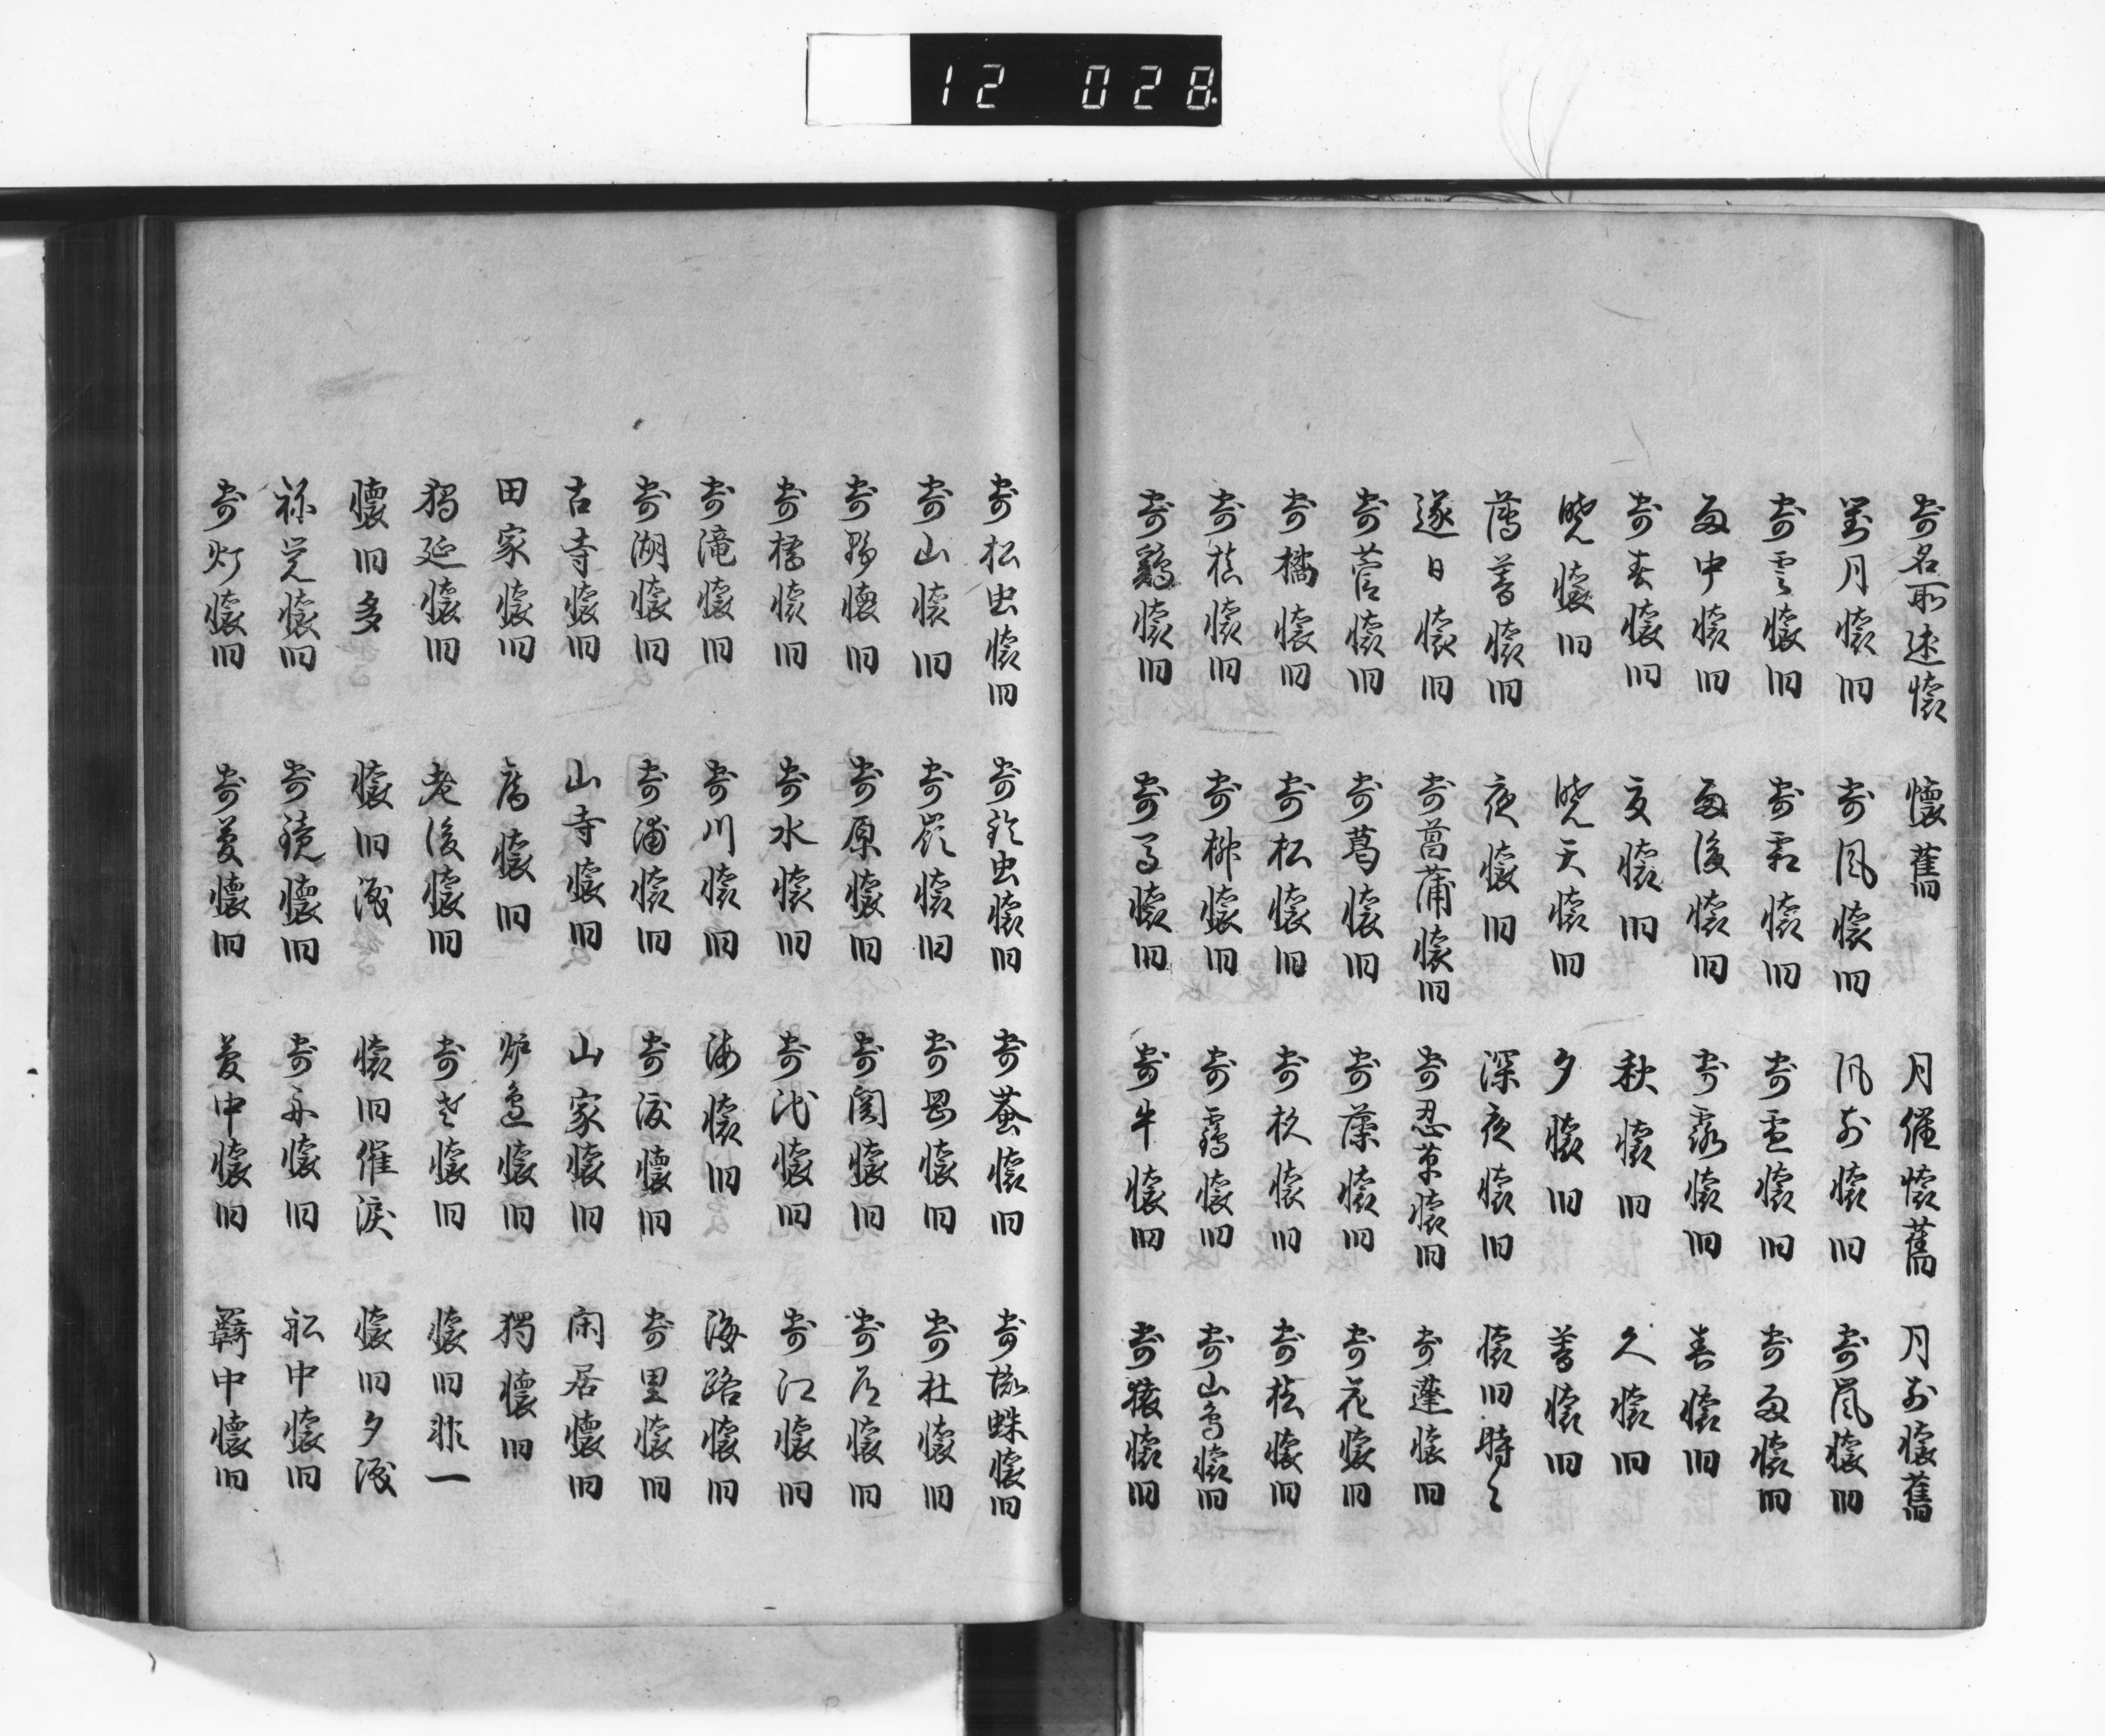 12 028
寄名所述懐 懐舊 月催懐舊 月前懐舊
対月懐旧 寄風懐旧 風前懐旧 寄嵐懐旧
寄雲懐旧 寄霜懐旧 寄雪懐旧 寄雨懐旧
雨中懐旧 雨後懐旧 寄露懐旧 春懐旧
寄春懐旧 夏懐旧 秋懐旧 冬懐旧
暁懐旧 暁天懐旧 夕懐旧 暮懐旧
薄暮懐旧 夜懐旧 深夜懐旧 懐旧時々
逐日懐旧 寄菖蒲懐旧 寄忍草懐旧 寄蓬懐旧
寄菅懐旧 寄葛懐旧 寄藻懐旧 寄花懐旧
寄橘懐旧 寄松懐旧 寄杉懐旧 寄懐旧
寄懐旧 寄懐旧 寄懐旧 寄山鳥懐旧
寄鶏懐旧 寄馬懐旧 寄牛懐旧 寄猿懐旧
寄松虫懐旧 寄鈴虫懐旧 寄懐旧 寄蛛懐旧
寄山懐旧 寄嶺懐旧 寄岡懐旧 寄杜懐旧
寄野懐旧 寄原懐旧 寄関懐旧 寄懐旧
寄橋懐旧 寄水懐旧 寄池懐旧 寄江懐旧
寄滝懐旧 寄川懐旧 海懐旧 海路懐旧
寄湖懐旧 寄浦懐旧 寄懐旧 寄里懐旧
古寺懐旧 山寺懐旧 山家懐旧 閑居懐旧
田家懐旧 懐旧 炉辺懐旧 獨懐旧
獨懐旧 老後懐旧 寄老懐旧 懐旧非一
懐旧多 懐旧涙 懐旧催涙 懐旧夕涙
寝覚懐旧 寄鏡懐旧 寄舟懐旧 船中懐旧
寄灯懐旧 寄夢懐旧 夢中懐旧 羇中懐旧